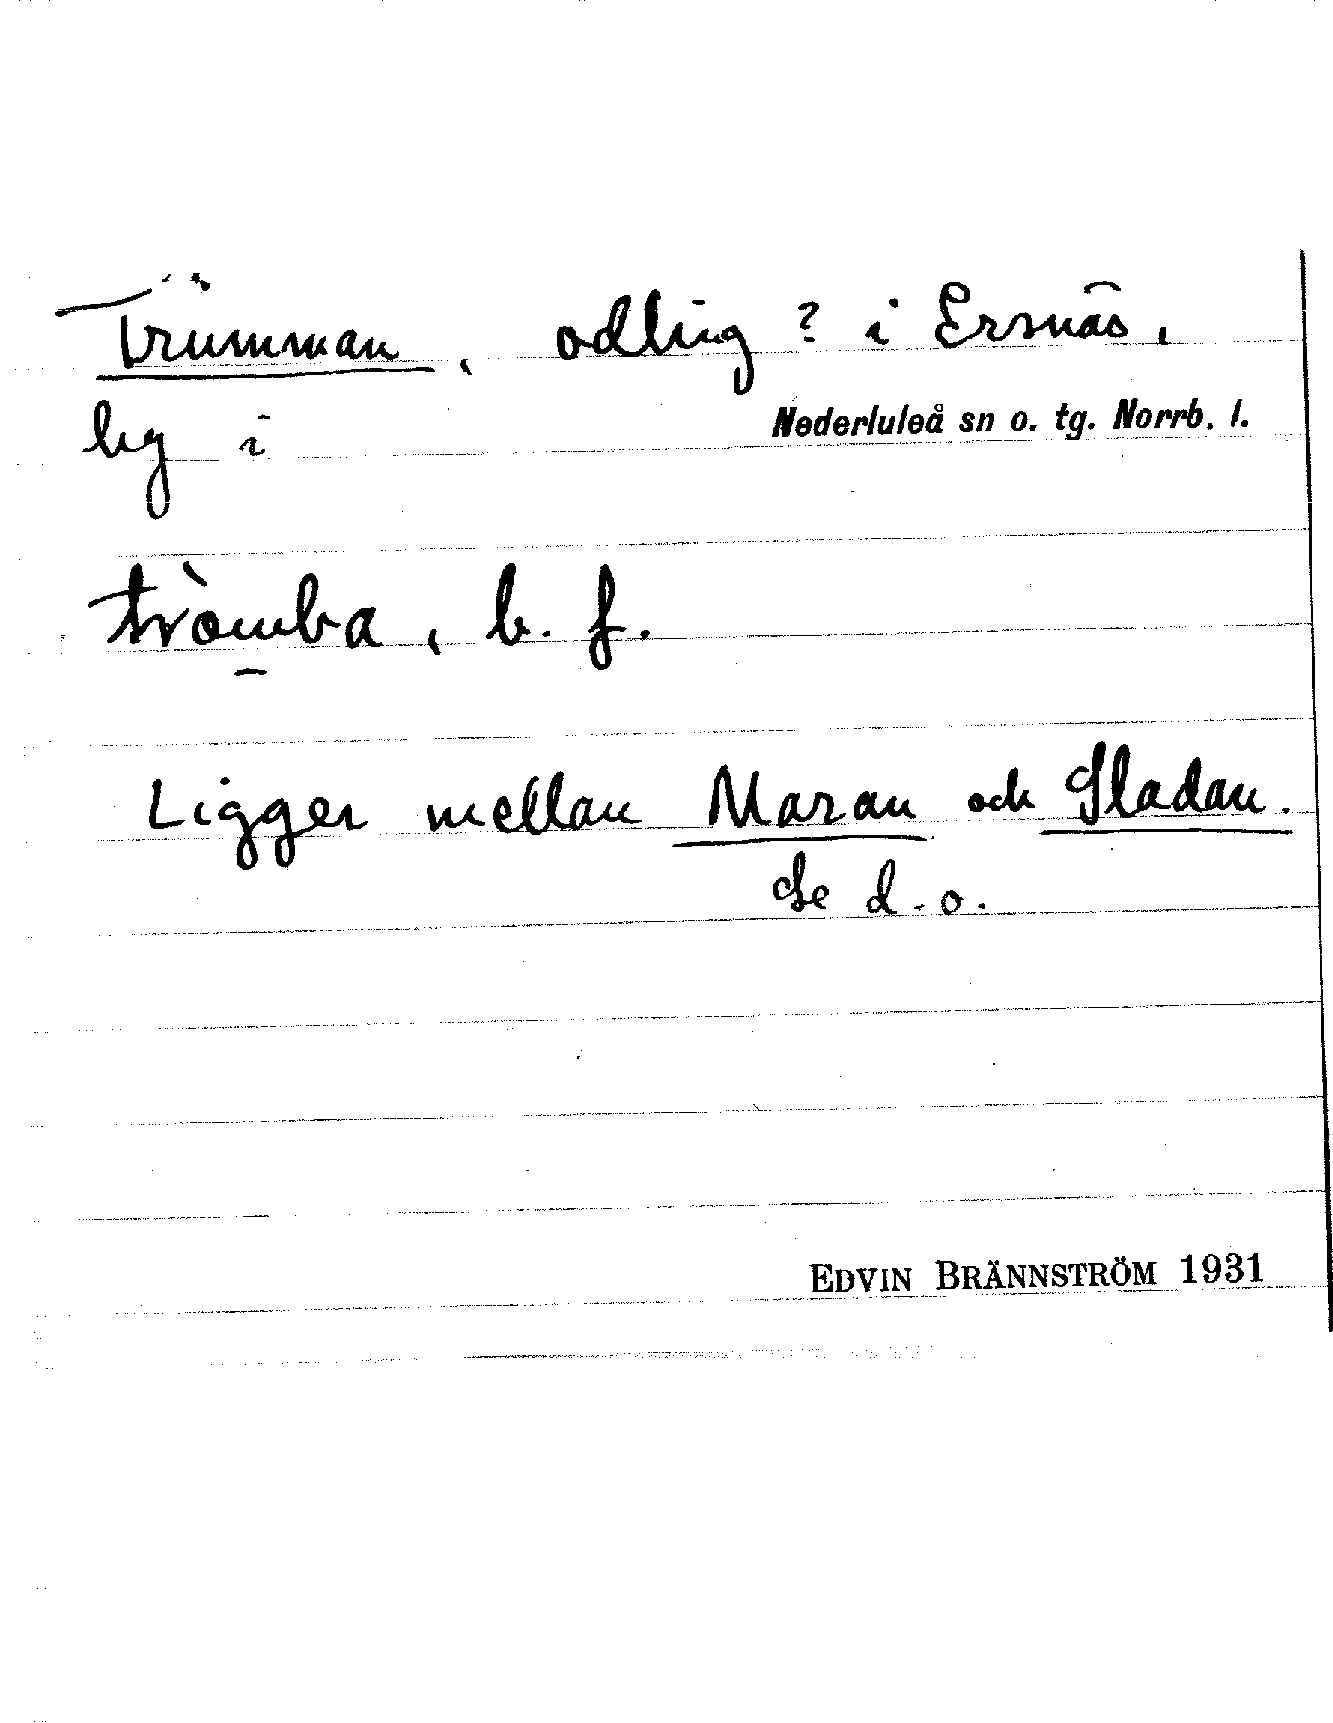 Trumman, odling ? i Ersnäs,
by i Nederluleå sn o. tg. Norrb. l.
tròmba, b. f.
Ligger mellan Maran och Sladan.
Se d.o.
EDVIN BRÄNNSTRÖM 1931